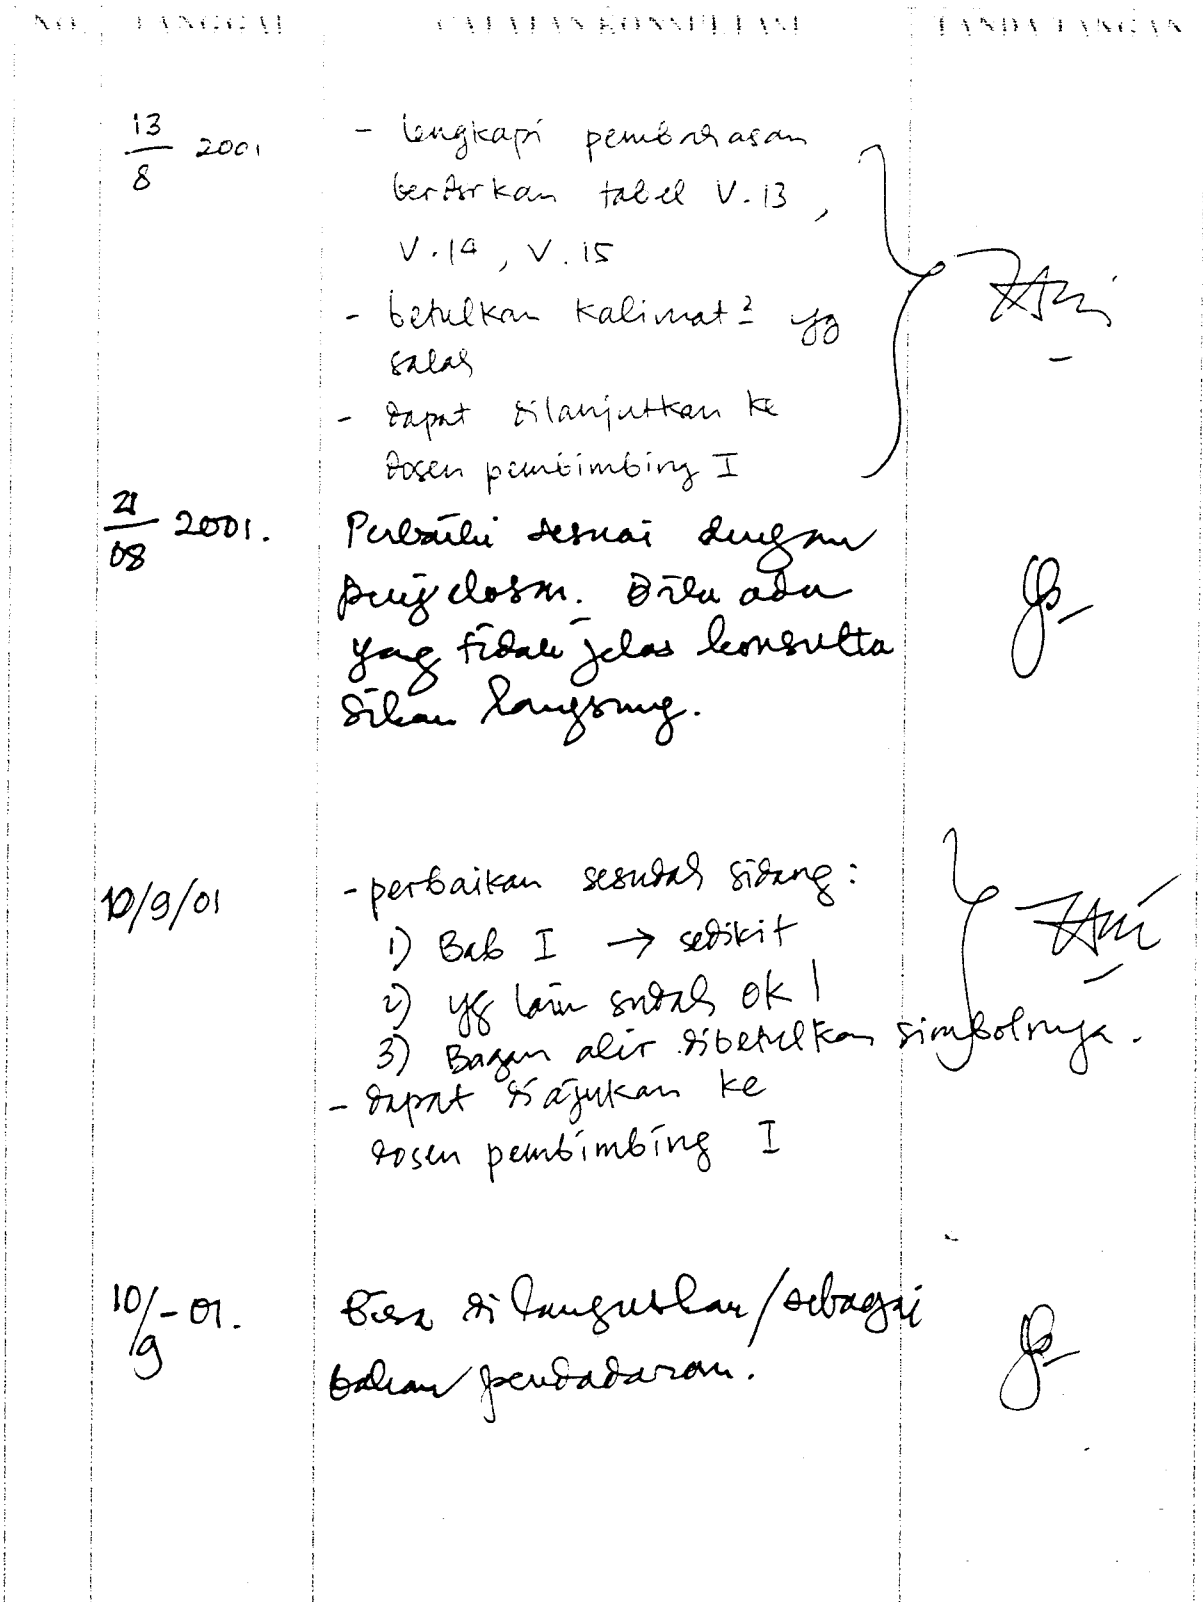 NO. TANGGAL CATATAN KONSULTASI TANDA TANGAN
13/8 2001
- lengkapi pembahasan
berdsrkan tabel V.13,
V.14, V.15
- betulkan kalimat2 yg
salah
- dapat dilanjutkan ke
dosen pembimbing I
21/08 2001.
Perbaiki sesuai dengan
penjelasan. Bila ada
yang tidak jelas konsulta
sikan langsung.
10/9/01
- perbaikan sesudah sidang:
1) Bab I → sedikit
2) yg lain sudah OK!
3) Bagan alir dibetulkan simbolnya.
- dapat diajukan ke
dosen pembimbing I
10/9-01.
Bisa di /sebagai
bahan pendadaran.